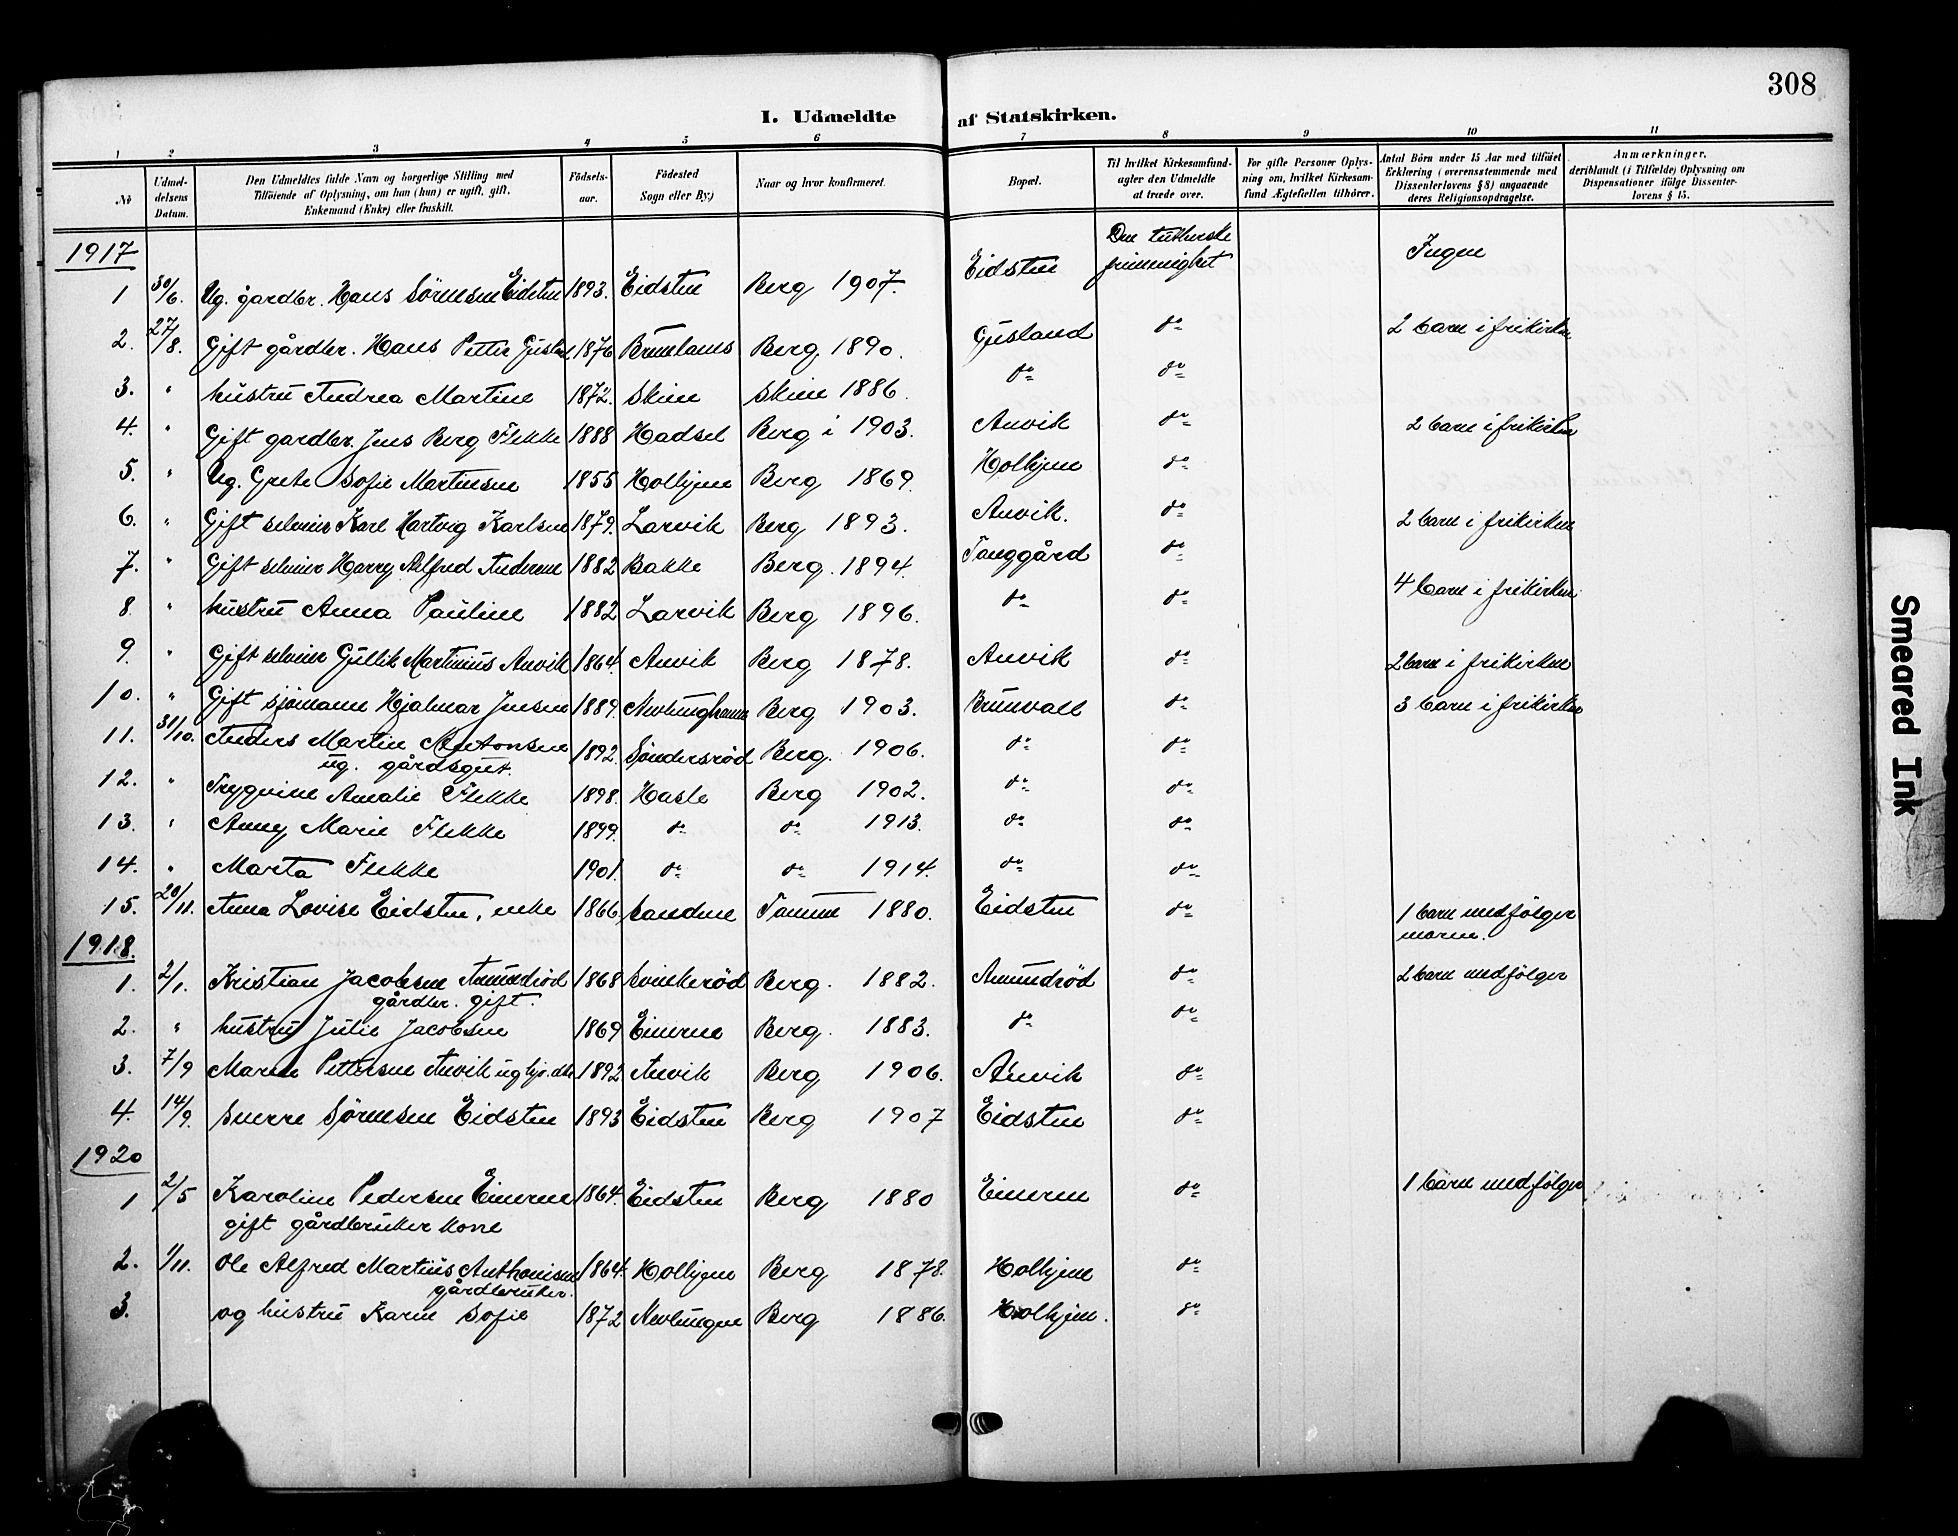 308
I. Udmeldte af Statskirken.
1 2 3 4 5 6 7 8 9 10 11
No
Udmeldelsens Datum.
Den Udmeldtes fulde Navn og borgerlige Stilling med Tilføiende af Oplysning, om han (hun) er ugift, gift, Enkemand (Enke) eller fraskilt.
Fødselsaar.
Fødested (Sogn eller By.)
Naar og hvor konfirmeret.
Bopæl.
Til hvilket Kirkesamfund agter den Udmeldte at træde over.
For gifte Personer Oplysning om, hvilket Kirkesamfund Ægtefællen tilhører.
Antal Børn under 15 Aar med tilføiet Erklæring (overensstemmende med Dissenterlovens § 8) angaaende deres Religionsopdragelse.
Anmærkninger, deriblandt (i Tilfælde) Oplysning om Dispensationer ifølge Dissenterlovens § 15.
1917
1 30/6. Ug. gårdbr. Hans Sörensen Eidsten 1893. Eidsten Berg 1907. Eidsten Den lutherske frimenighet Ingen
2. 27/8. Gift gårdbr. Hans Petter Gusland 1876 Brunlanes Berg 1890. Gusland do 2 barn i frikirken
3. " hustru Andrea Martine 1872. Skien Skien 1886. do do
4. " Gift gardbr. Jens Berg Flekke 1888 Hadsel Berg i 1903. Anvik do 2 barn i frikirken
5. " Ug. Grete Sofie Martinsen 1855 Holhjem Berg 1869. Holhjem do
6. " Gift selveier Karl Hartvig Karlsen 1879. Larvik Berg 1893. Anvik. do 2 barn i frikirken
7. " Gift selveier Harry Alfred Andersen 1882 Bakke Berg. 1894. Tanggård do
8. " hustru Anna Pauline 1882 Larvik Berg 1896. do do 4 barn i frikirken
9. " Gift selveier Gullik Martinius Anvik 1864. Anvik Berg 1878. Anvik do 2 barn i frikirken
10. " Gift sjömann Hjalmar Jensen 1889. Nevlunghavn Berg 1903. Brunvall do 3 barn i frikirken
11. 31/10. Anders Martin Antonsen 1892. Søndersrød Berg. 1906. do do
ug. gårdsgut.
12. " Trygvine Amalie Flekke 1898. Hasle Berg 1902. do do
13. " Anny Marie Flekke 1899. do do 1913. do do
14. " Marta Flekke 1901. do do 1914. do do
15. 20/11. Anna Lovise Eidsten, enke 1866, Sandene Tanum 1880. Eidsten do 1 barn medfølger moren.
1918.
1. 2/1. Kristian Jacobsen Amundrød 1868 Svinkerød Berg. 1882. Amundrød do 2 barn medfølger
gårdbr. gift.
2. " hustru Julie Jacobsen 1869 Eineren Berg. 1883. do do
3. 7/9 Maren Pettersen Anvik ug 1892 Anvik Berg 1906. Anvik do
4. 14/9. Sverre Sørensen Eidsten 1893 Eidsten Berg 1907 Eidsten do
1920
1 2/5 Karoline Pedersen Eineren 1864. Eidsten Berg 1880 Eineren do 1 barn medfølger
gift gårdbruker kone
2. 1/11. Ole Alfred Martius Anthonisen 1864. Holhjem Berg 1878. Holhjem do
gårdbruker.
3. og hustru Karen Sofie 1872 Nevlungen Berg 1886. Holhjem. do
Smeared Ink